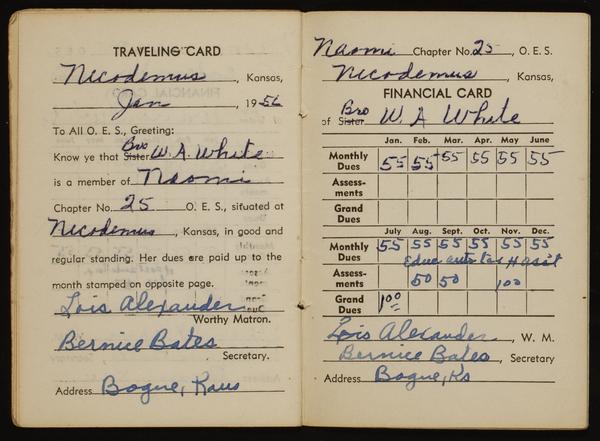 TRAVELING CARD
Nicodemus, Kansas,
Jan, 1956
To All O. E. S., Greeting:
Know ye that Sister Bro W. A. White
is a member of Naomi
Chapter No. 25 O. E. S., situated at
Nicodemus, Kansas, in good and
regular standing. Her dues are paid up to the
month stamped on opposite page.
Lois Alexander
Worthy Matron.
Bernice Bates
Secretary.
Address Bogue, Kans
Naomi Chapter No. 25, O. E. S.
Nicodemus, Kansas,
FINANCIAL CARD
of Sister Bro W. A White
Jan. Feb. Mar. Apr. May June
Monthly Dues 55 55 55 55 55 55
Assess-
ments
Grand
Dues
July Aug. Sept. Oct. Nov. Dec.
Monthly Dues 55 55 55 55 55 55
Assess-
ments 50 50 1 00
Grand
Dues 1 00
Lois Alexander, W. M.
Bernice Bates, Secretary
Address Bogue, Ks